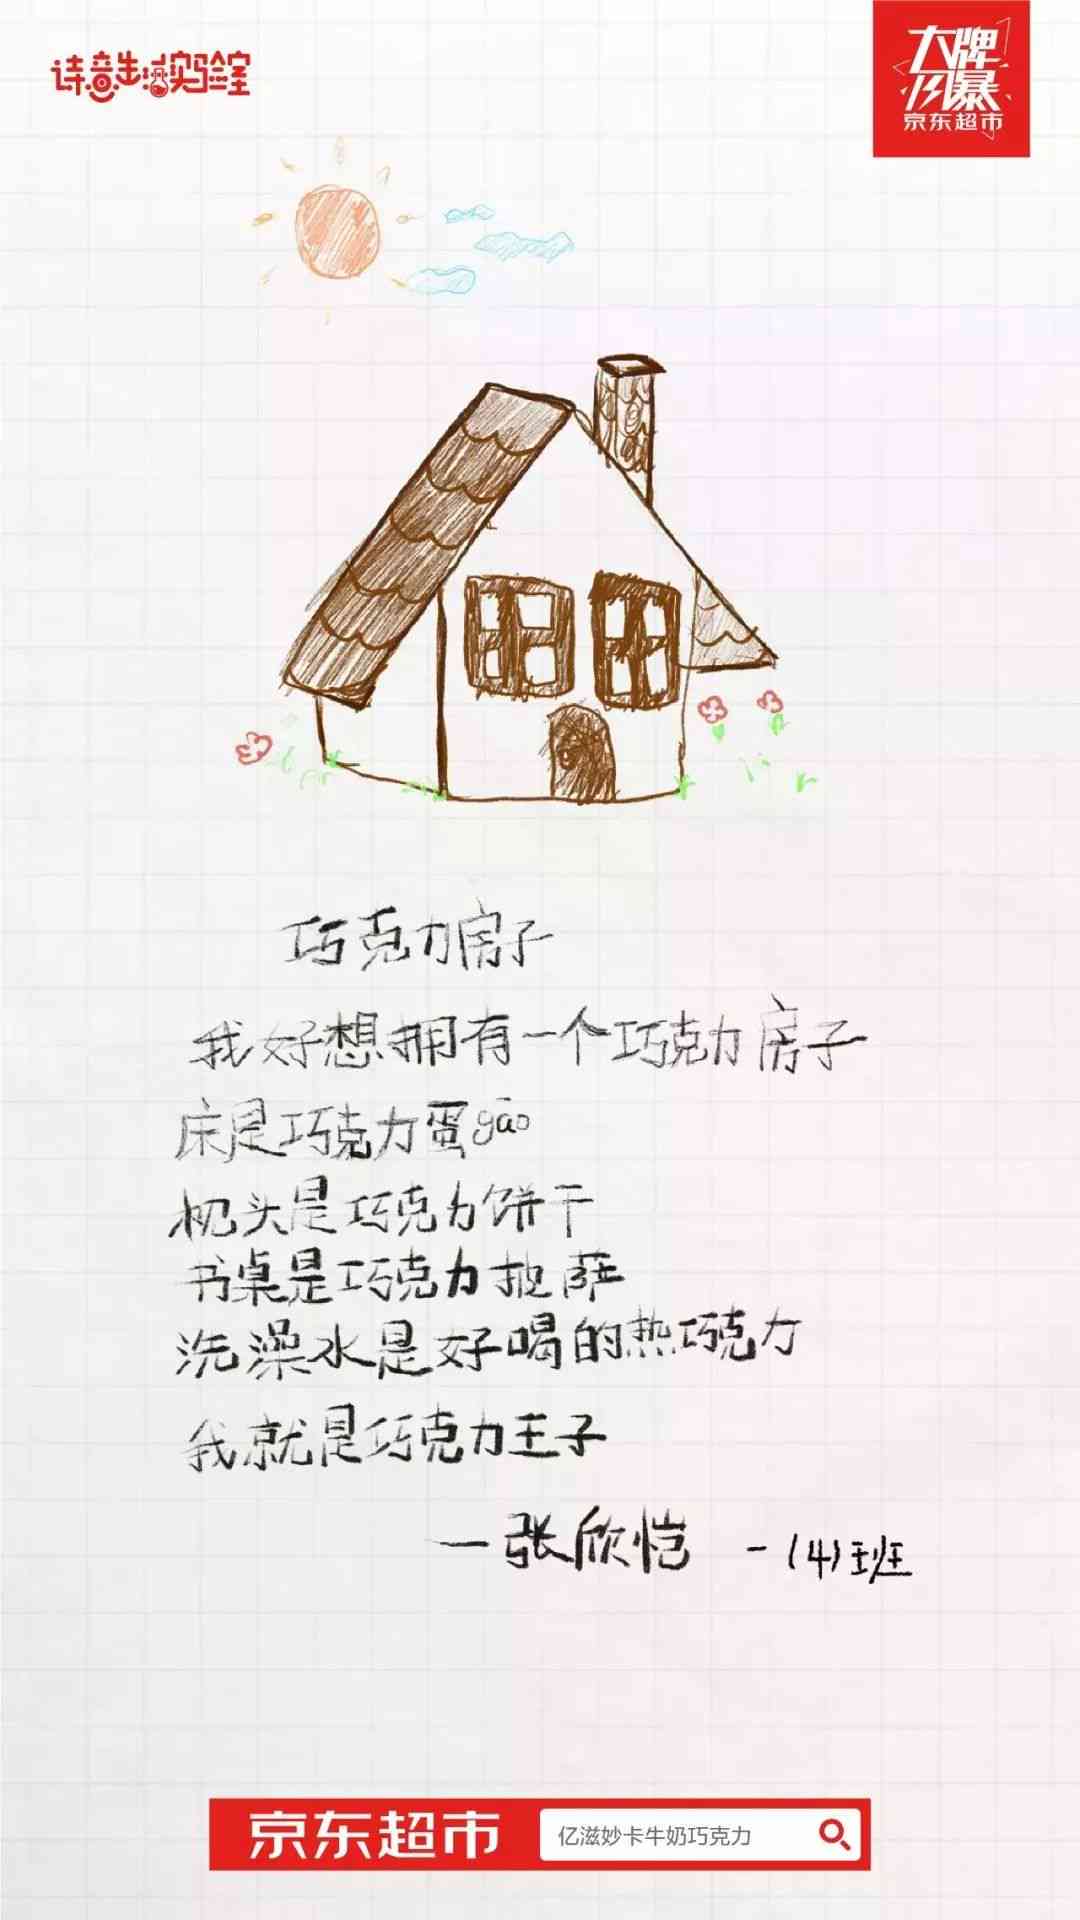 诗意生活实验室
大牌
风暴
京东超市
巧克力房子
我好想拥有一个巧克力房子
床是巧克力蛋gāo
枕头是巧克力饼干
书桌是巧克力披萨
洗澡水是好喝的热巧克力
我就是巧克力王子
—张欣恺 一(4)班
京东超市 亿滋妙卡牛奶巧克力